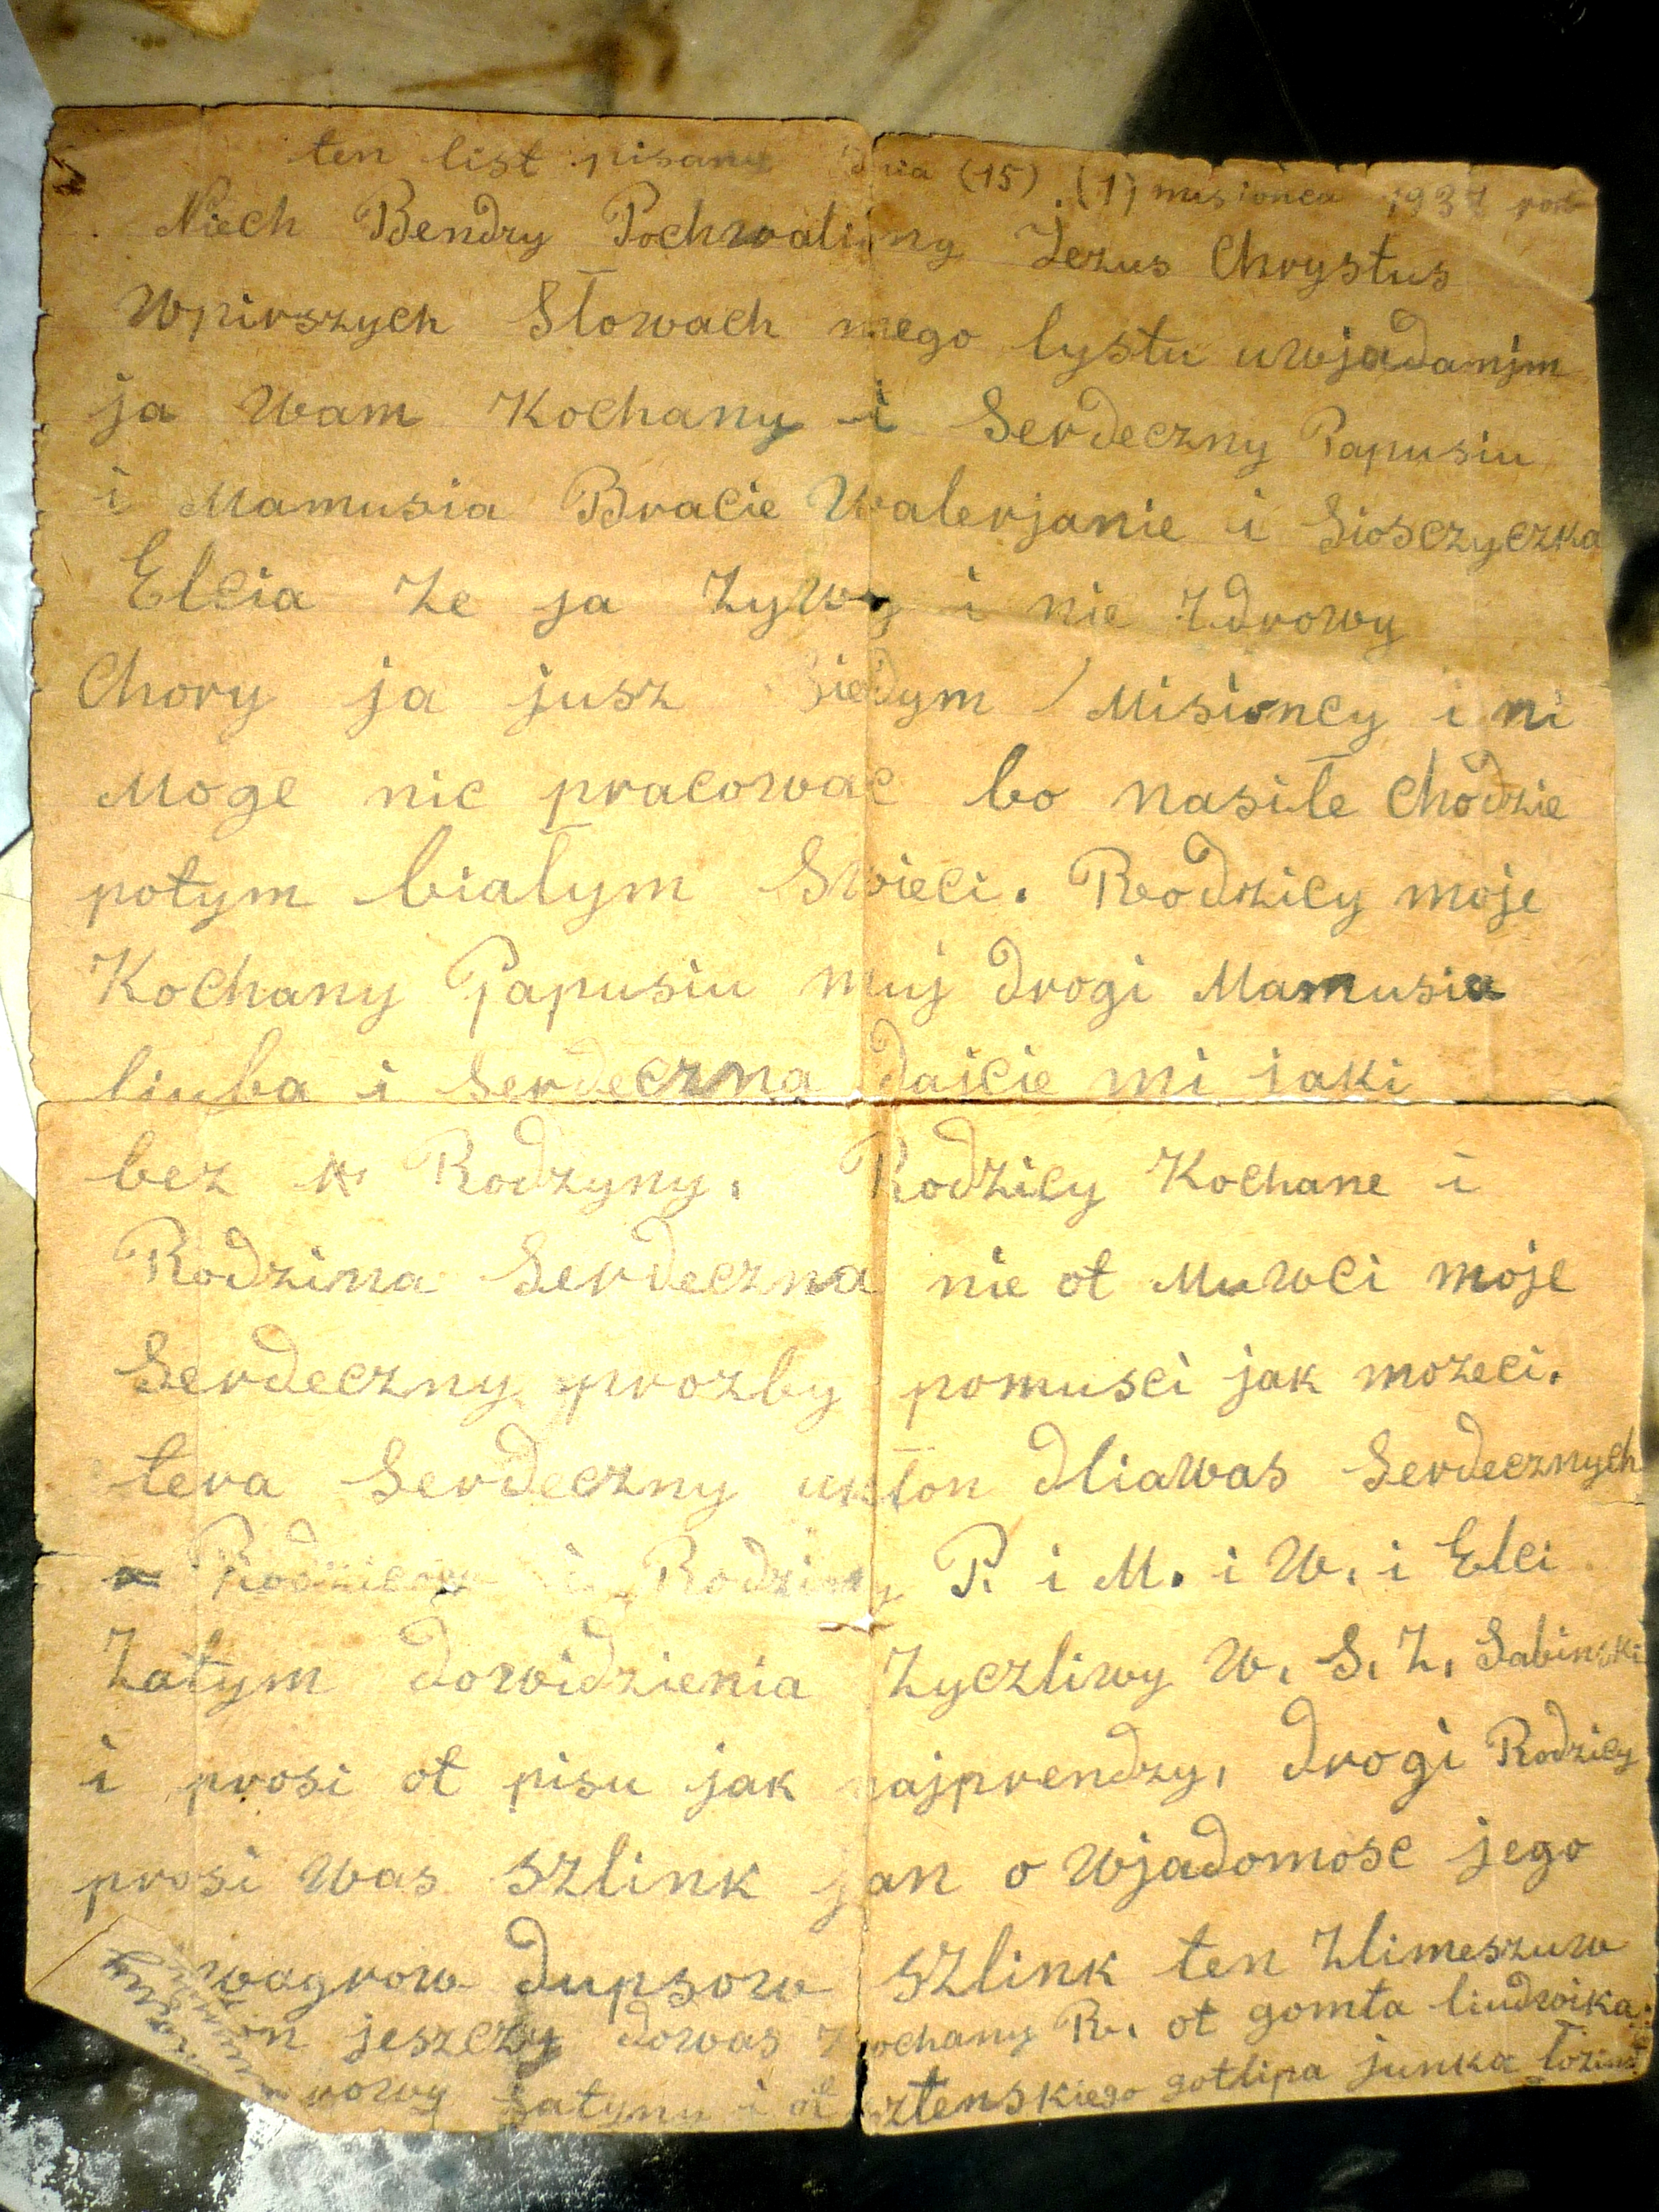 ten list pisany dnia (15) (1) misionca 1937 rok
Niech Bendzy Pochwaliny Jezus Chrystus
Wpirszych Słowach mego lystu uwjadamjm
ja Wam Kochany i Serdeczny Papusiu
i Mamusia Bracie Walerjanie i Siosczyczka
Elcia Ze ja Zywy i nie Zdrowy
Chory ja jusz Siedym Misioncy i ni
Moge nic pracowac bo nasile Chodzie
potym białym Swieci. Rodzicy moje
Kochany Papusiu muj drogi Mamusia
liuba i Serdeczna dajcie mi jaki
bez Rodzyny. Rodzicy Kochane i
Rodzina Serdeczna nie ot Muwci moje
Serdeczny prozby pomusci jak mozeci.
tera Serdeczny ukłon dliawas Serdecznych
Rodzicow i Rodziny P. i M. i W. i Elci
Zatym dowidzienia Zyczliwy W. S. Z. Sabinski
i prosi ot pisu jak najprendzy, drogi Rodzicy
prosi Was Szlink jan o Wjadomosc jego
wagrow dupsow Szlink ten Zlimeszuw
jeszczy dowas Kochany R. ot gomta liudwika
i ot sztenskiego gotlipa junka